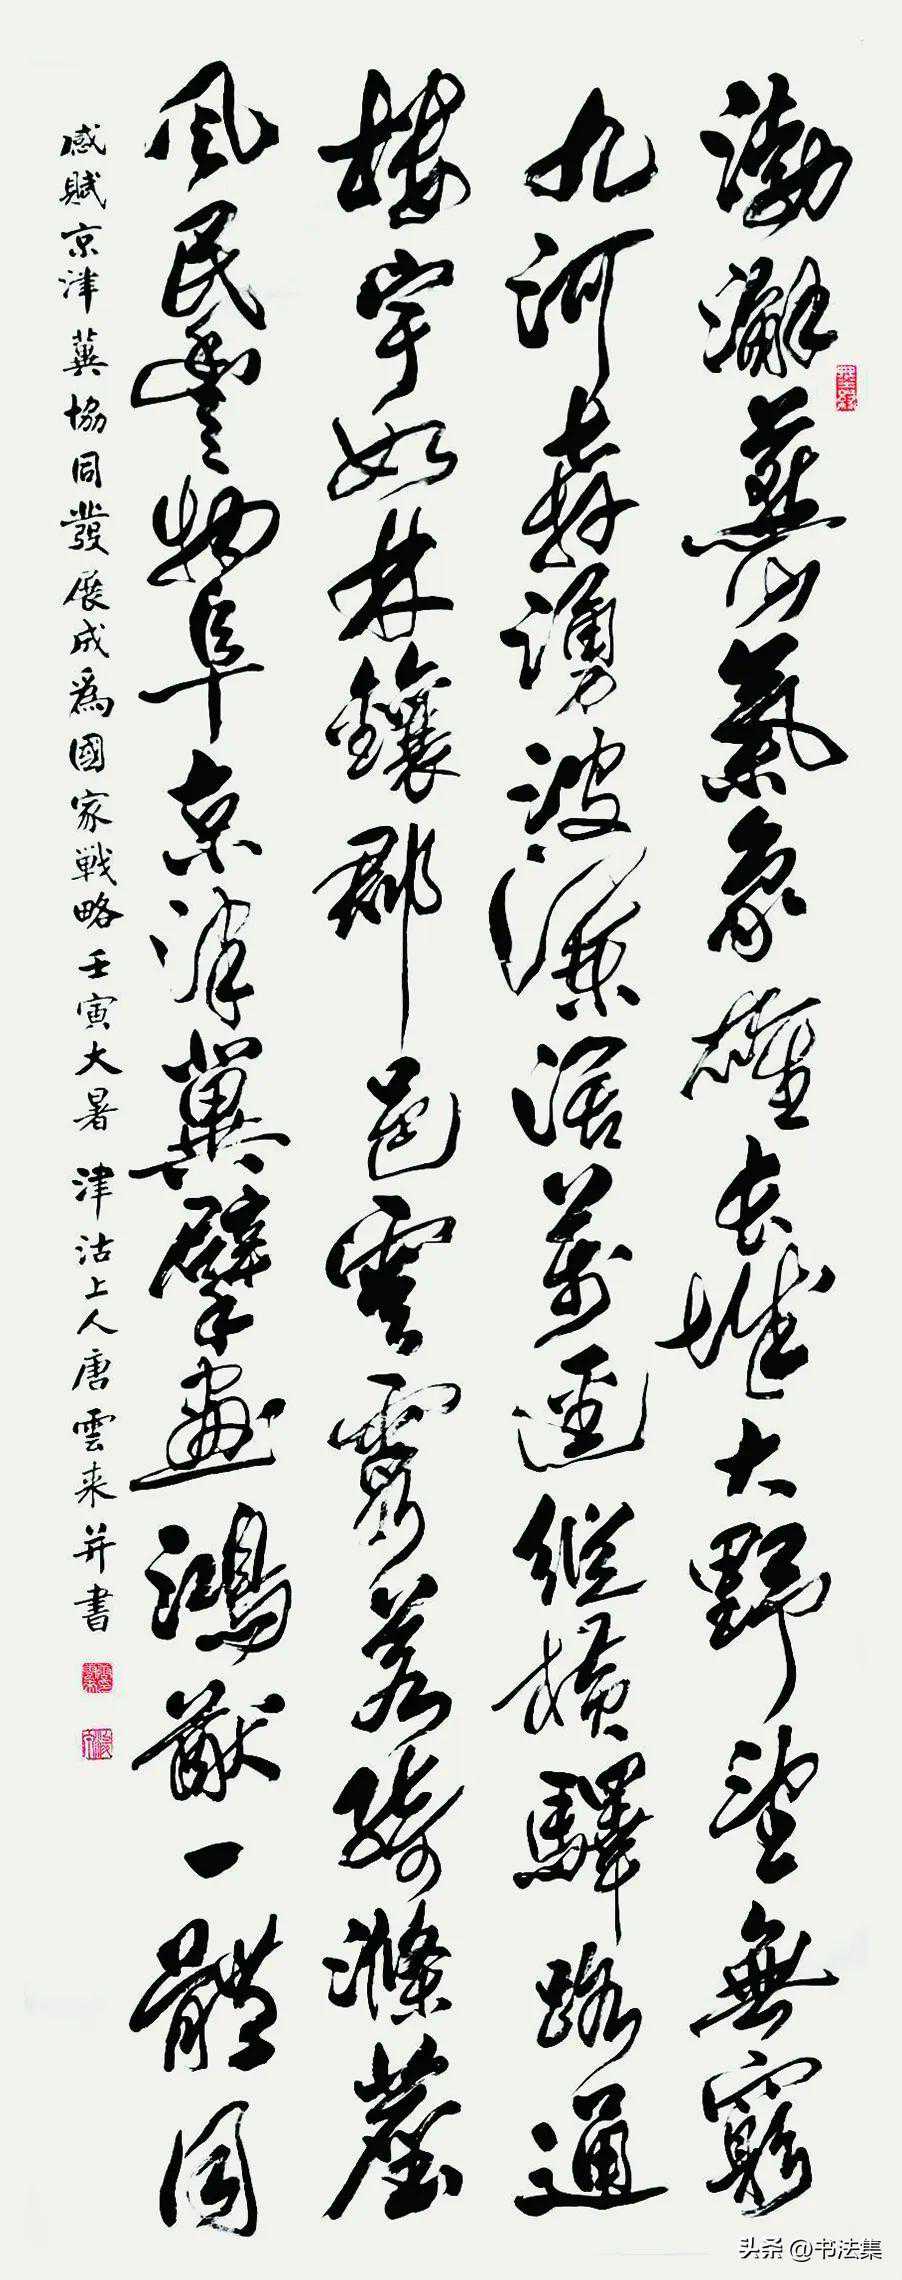 渤澥燕山氣象雄長城大野望無窮
九河奔湧波活萬逕縱橫驛路通
樓宇如林鑲郡邑雲霞若綺滌塵
風民豐物阜京津冀擘畫鴻猷一體同
感賦京津冀協同發展成爲國家戦略壬寅大暑 津沽上人唐雲来并書
头条 @书法集